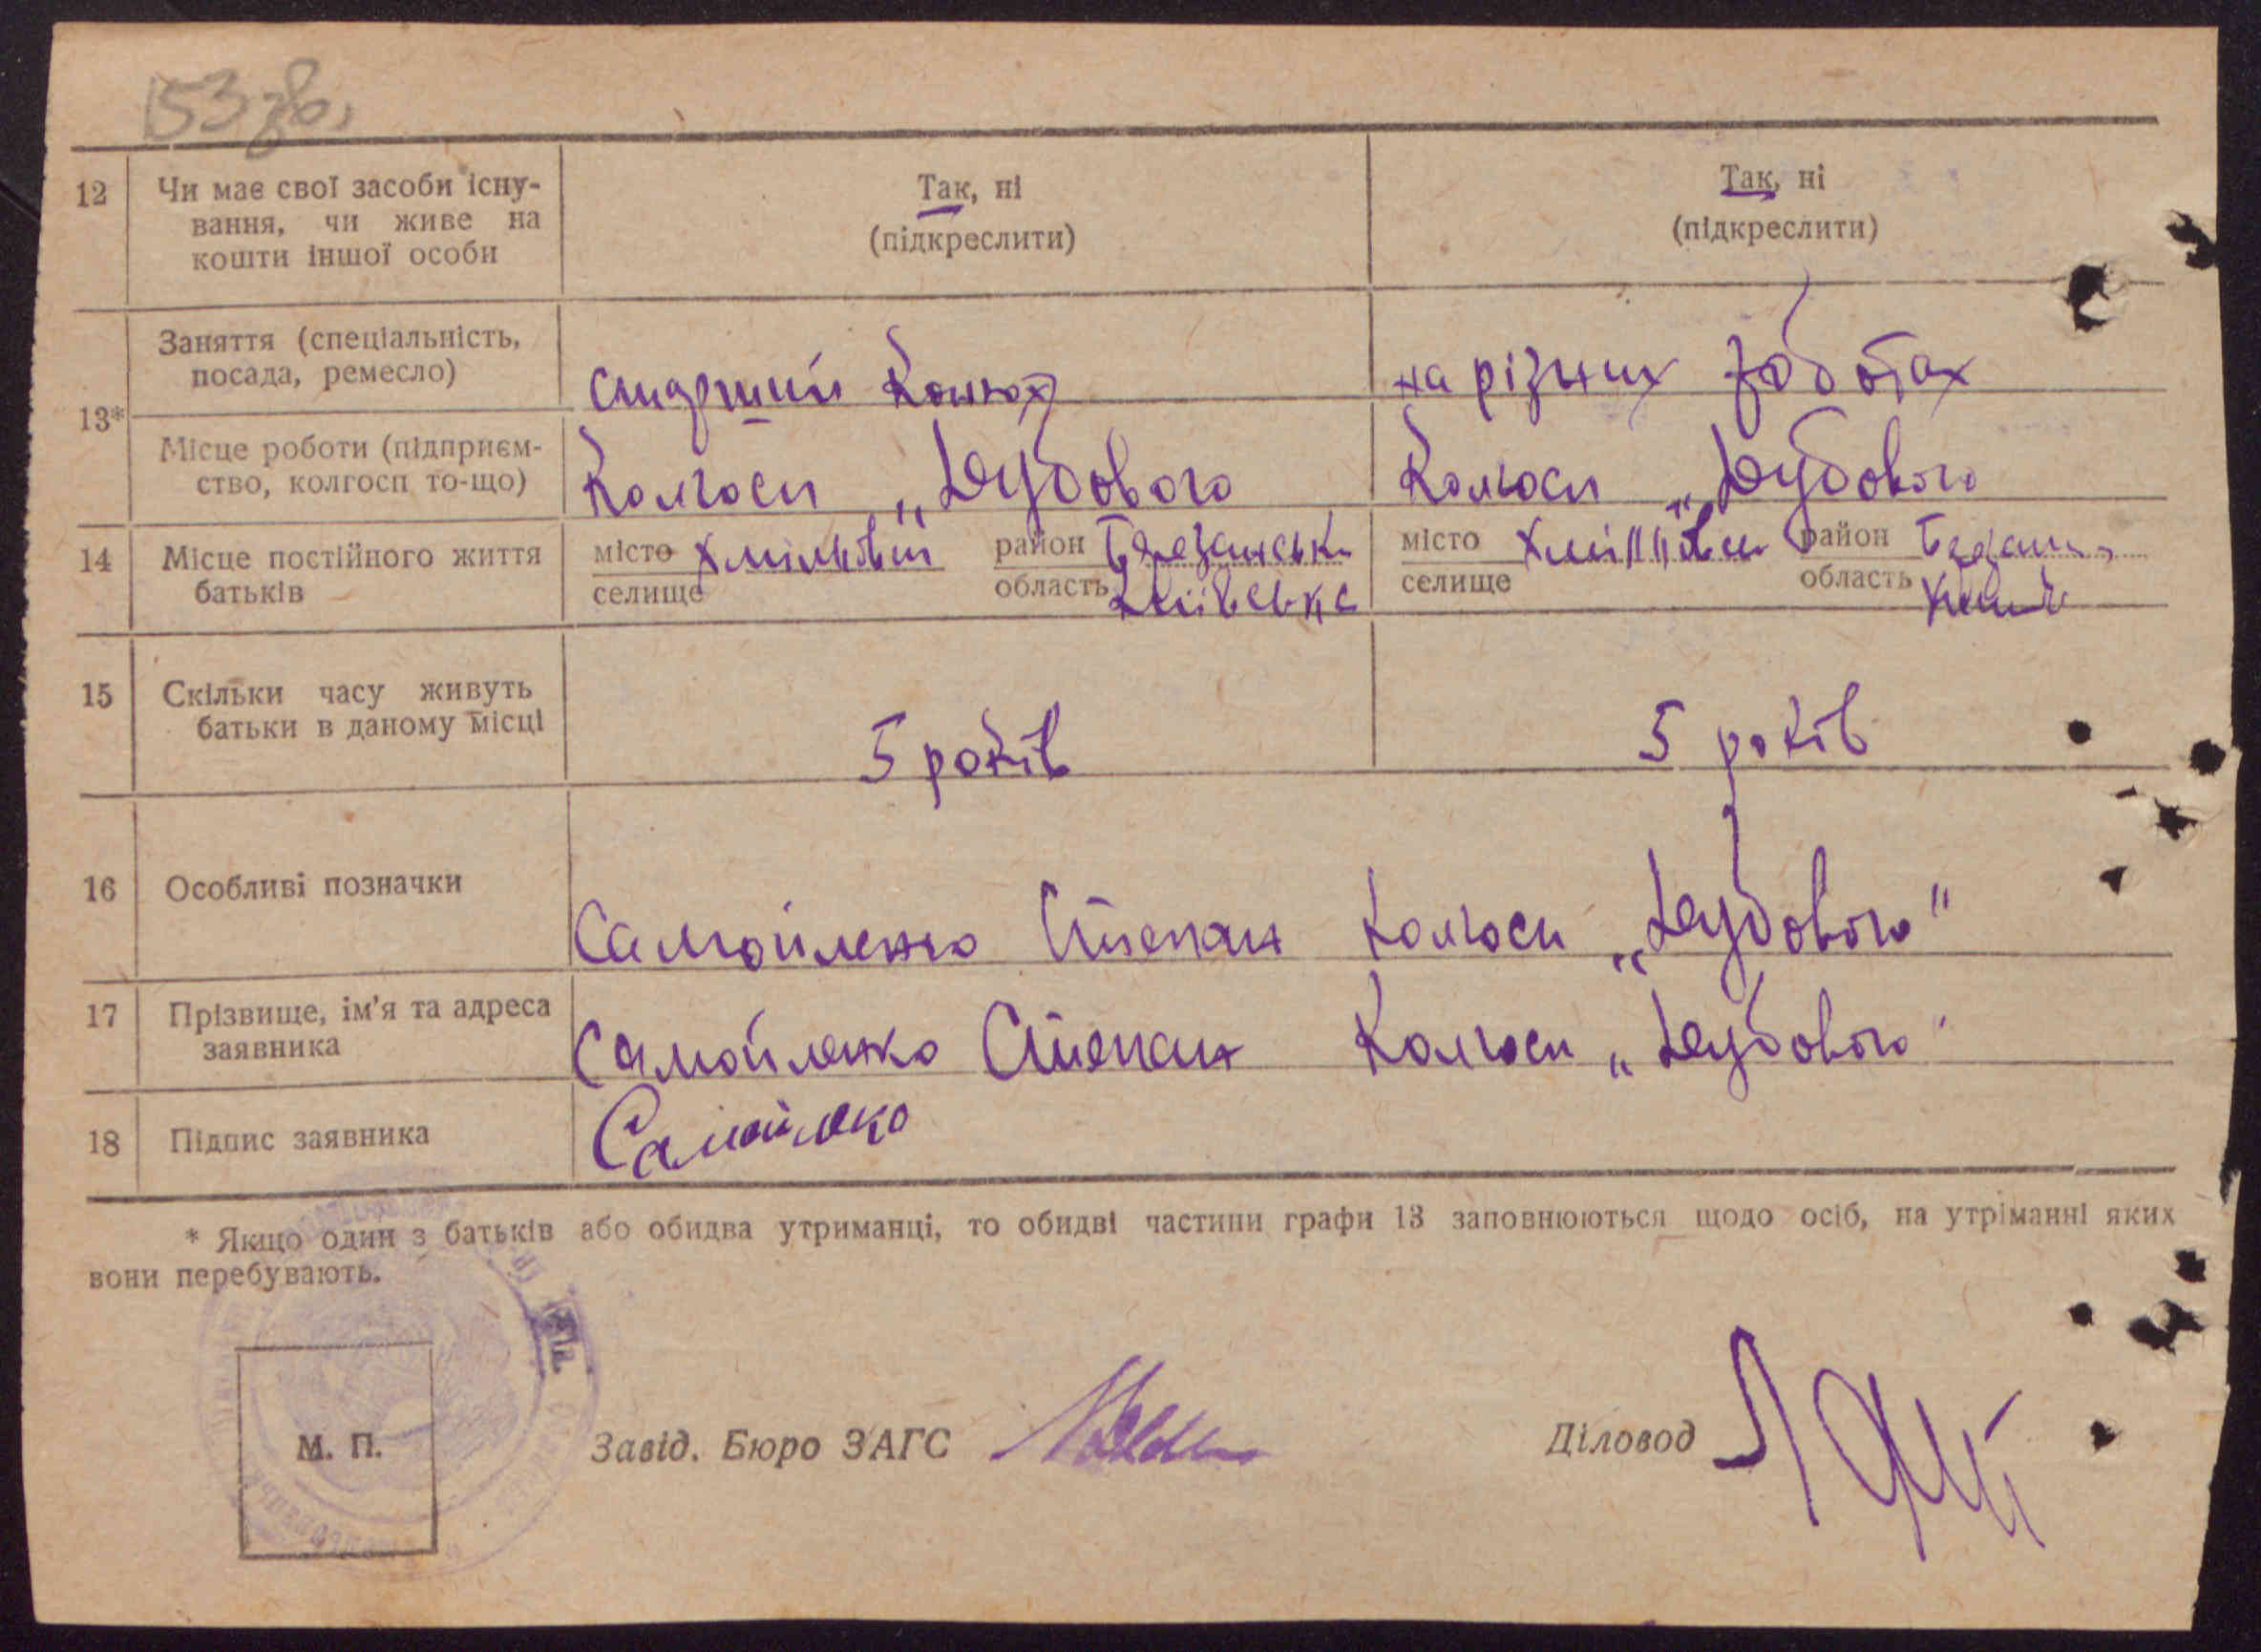 153 зв.
12 Чи має свої засоби існу- Так, ні Так, ні
вання, чи живе на (підкреслити) (підкреслити)
кошти іншої особи
13* Заняття (спеціальність,
посада, ремесло) старший конюх на різних роботах
Місце роботи (підприєм-
ство, колгосп то-що) Колгосп „Дубового Колгосп „Дубового
14 Місце постійного життя місто район Березанськ місто район
батьків селище область Київське селище область
15 Скільки часу живуть
батьки в даному місці 5 років 5 років
16 Особливі позначки Самойленко Степан Колгосп „Дубового"
17 Прізвище, ім'я та адреса
заявника Самойленко Степан Колгосп „Дубового"
18 Підпис заявника
* Якщо один з батьків або обидва утриманці, то обидві частини графи 13 заповнюються щодо осіб, на утріманні яких
вони перебувають.
М. П. Завід. Бюро ЗАГС Діловод